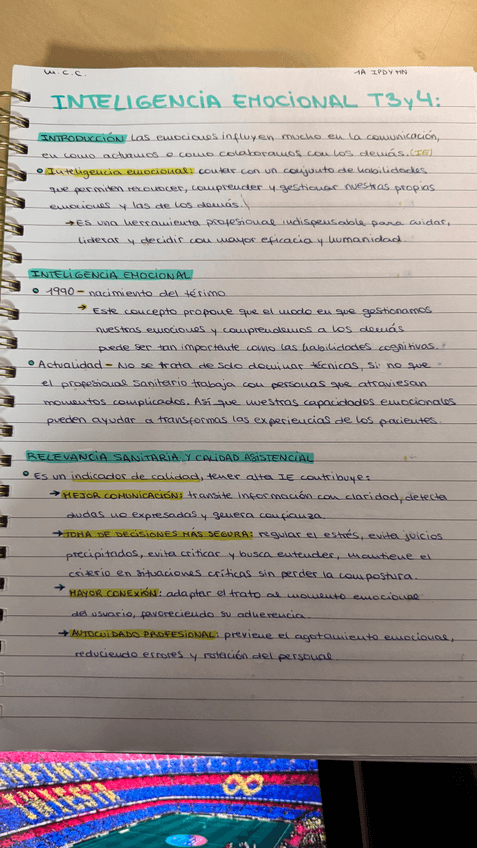 M.C.C.
1A IPDY MN
INTELIGENCIA EMOCIONAL T3y4:
INTRODUCCIÓN Las emociones influyen mucho en la comunicación,
en como actuamos o como colaboramos con los demás. (IE)
Inteligencia emocional: contar con un conjunto de habilidades
que permiten reconocer, comprender y gestionar nuestras propias
emociones y las de los demás.
→ Es una herramienta profesional indispensable para cuidar,
liderar y decidir con mayor eficacia y humanidad.
INTELIGENCIA EMOCIONAL
1990 - nacimiento del térimo
→ Este concepto propone que el modo en que gestionamos
nuestras emociones y comprendemos a los demás
puede ser tan importante como las habilidades cognitivas.
Actualidad - No se trata de solo dominar técnicas, si no que
el profesional sanitario trabaja con personas que atraviesan
momentos complicados. Así que nuestras capacidades emocionales
pueden ayudar a transformas las experiencias de los pacientes.
RELEVANCIA SANITARIA Y CALIDAD ASISTENCIAL
Es un indicador de calidad, tener alta IE contribuye:
→ MEJOR COMUNICACIÓN: transite información con claridad, detecta
dudas no expresadas y genera confianza.
→ TOMA DE DECISIONES MÁS SEGURA: regular el estrés, evita juicios
precipitados, evita criticar y busca entender, mantiene el
criterio en situaciones críticas sin perder la compostura.
→ MAYOR CONEXIÓN: adaptar el trato al momento emocional
del usuario, favoreciendo su adherencia.
→ AUTOCUIDADO PROFESIONAL: previene el agotamiento emocional,
reduciendo errores y rotación del personal.